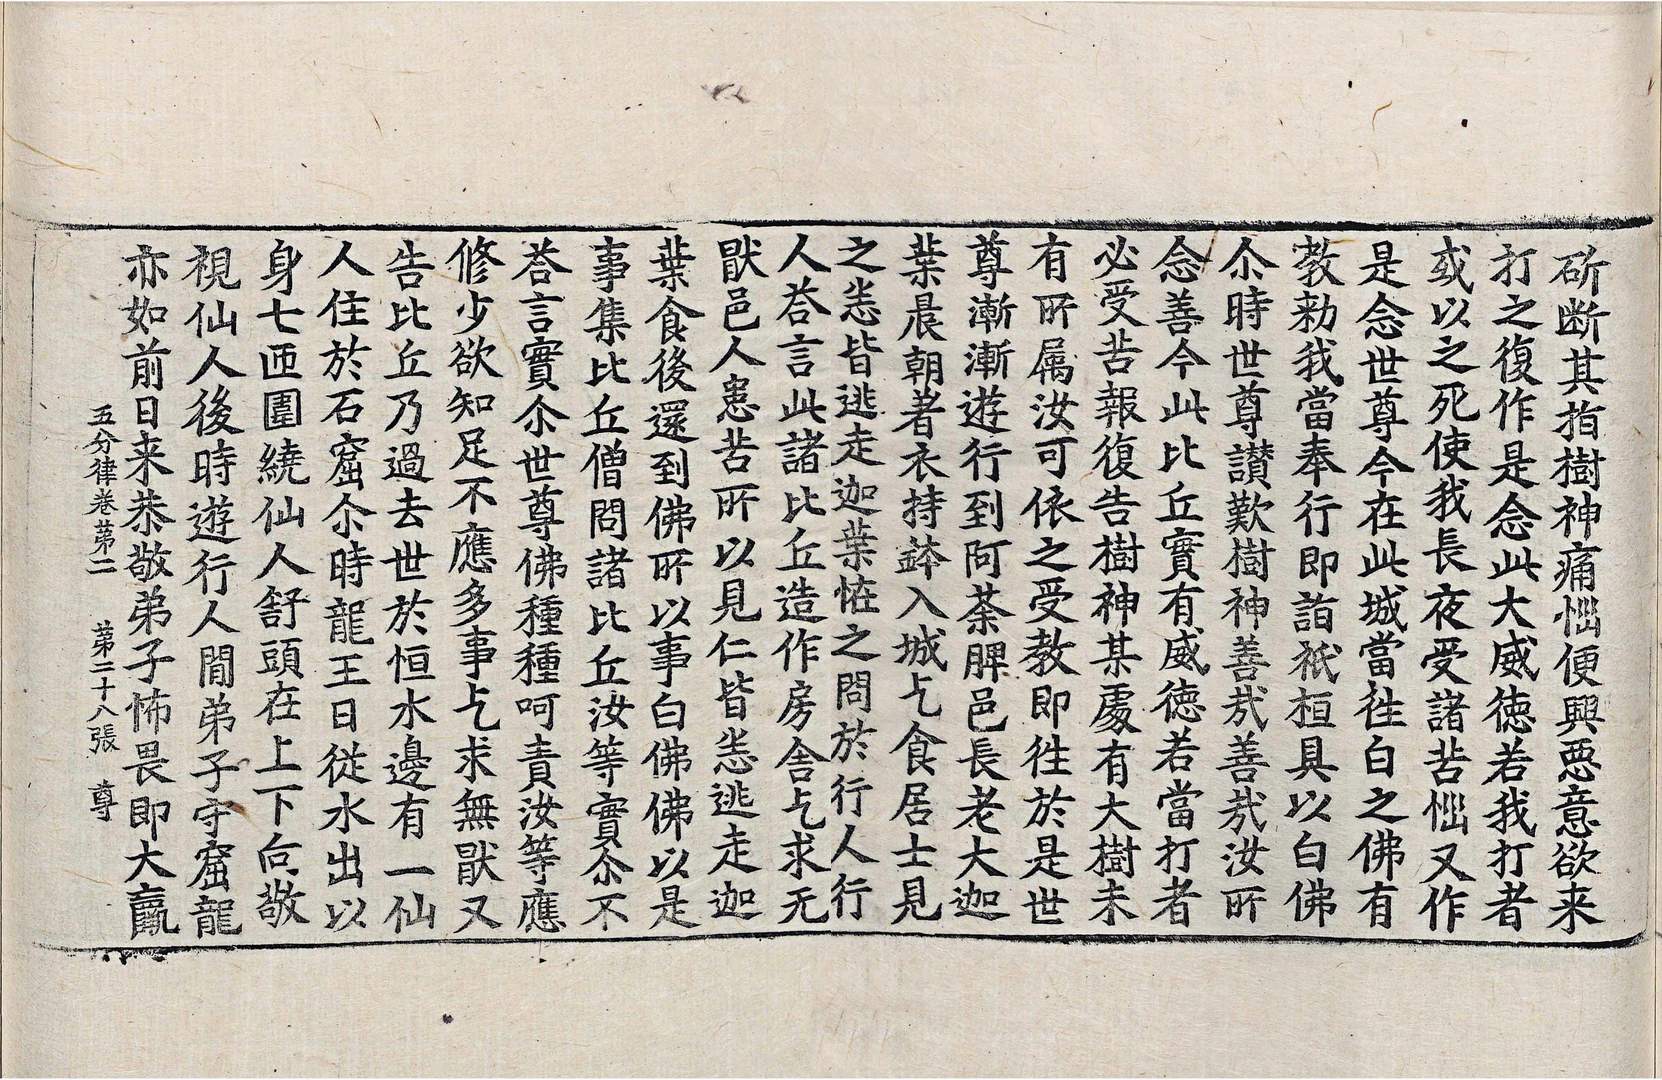 斫断其指樹神痛㤙便興惡意欲来
打之復作是念此大威徳若我打者
或以之死使我長夜受諸苦㤙又作
是念世尊今在此城當徃白之佛有
教勑我當奉行即詣祇桓具以白佛
尒時世尊讃歎樹神善㢤善㢤汝所
念善今此比丘實有威徳若當打者
必受苦報復告樹神某處有大樹未
有所属汝可依之受教即徃於是世
尊漸漸遊行到阿荼脾邑長老大迦
葉晨朝著衣持鉢入城乞食居士見
之悉皆逃走迦葉恠之問於行人行
人荅言此諸比丘造作房舎乞求无
猒邑人患苦所以見仁皆悉逃走迦
葉食後還到佛所以事白佛佛以是
事集比丘僧問諸比丘汝等實尒不
荅言實尒世尊佛種種呵責汝等應
修少欲知足不應多事乞求無猒又
告比丘乃過去世於恒水邊有一仙
人住於石窟尒時龍王日従水出以
身七匝圍繞仙人舒頭在上下向敬
視仙人後時遊行人間弟子守窟龍
亦如前日来恭敬弟子怖畏即大羸
五分律卷第二　第二十八張　尊